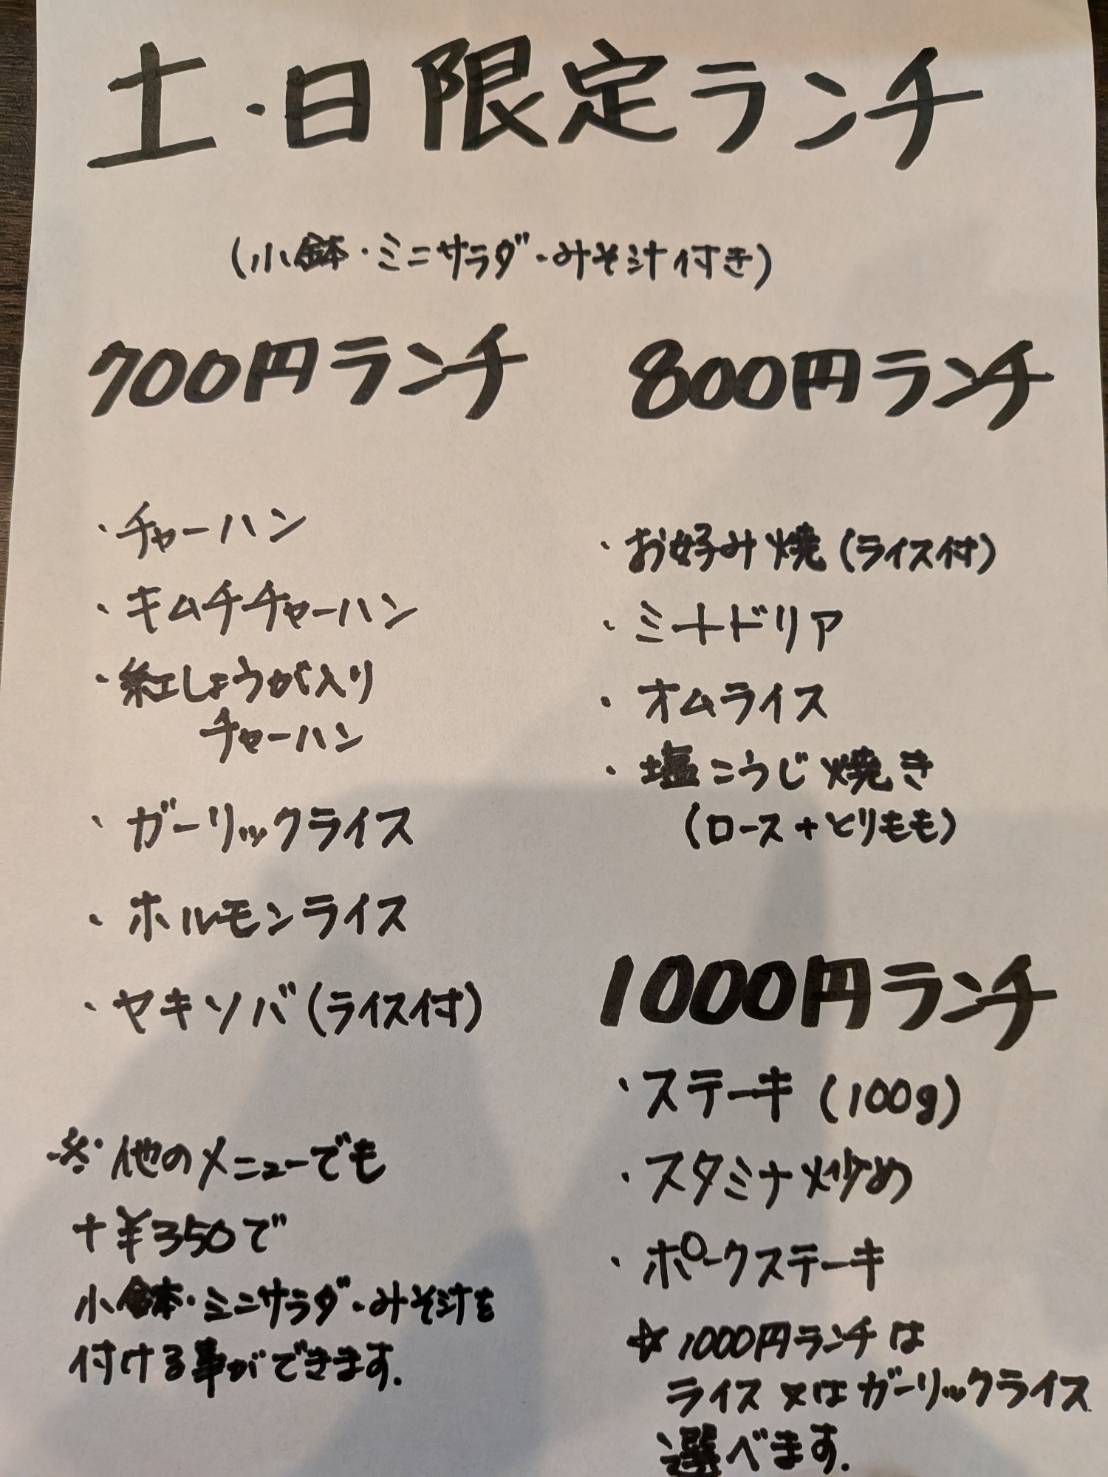 土・日限定ランチ
(小鉢・ミニサラダ・みそ汁付き)
700円ランチ
・チャーハン
・キムチチャーハン
・紅しょうが入り
チャーハン
・ガーリックライス
・ホルモンライス
・ヤキソバ(ライス付)
※他のメニューでも
+¥350で
小鉢・ミニサラダ・みそ汁を
付ける事ができます.
800円ランチ
・お好み焼(ライス付)
・ミートドリア
・オムライス
・塩こうじ焼き
(ロース+とりもも)
1000円ランチ
・ステーキ(100g)
・スタミナ炒め
・ポークステーキ
☆1000円ランチは
ライス又はガーリックライス
選べます.